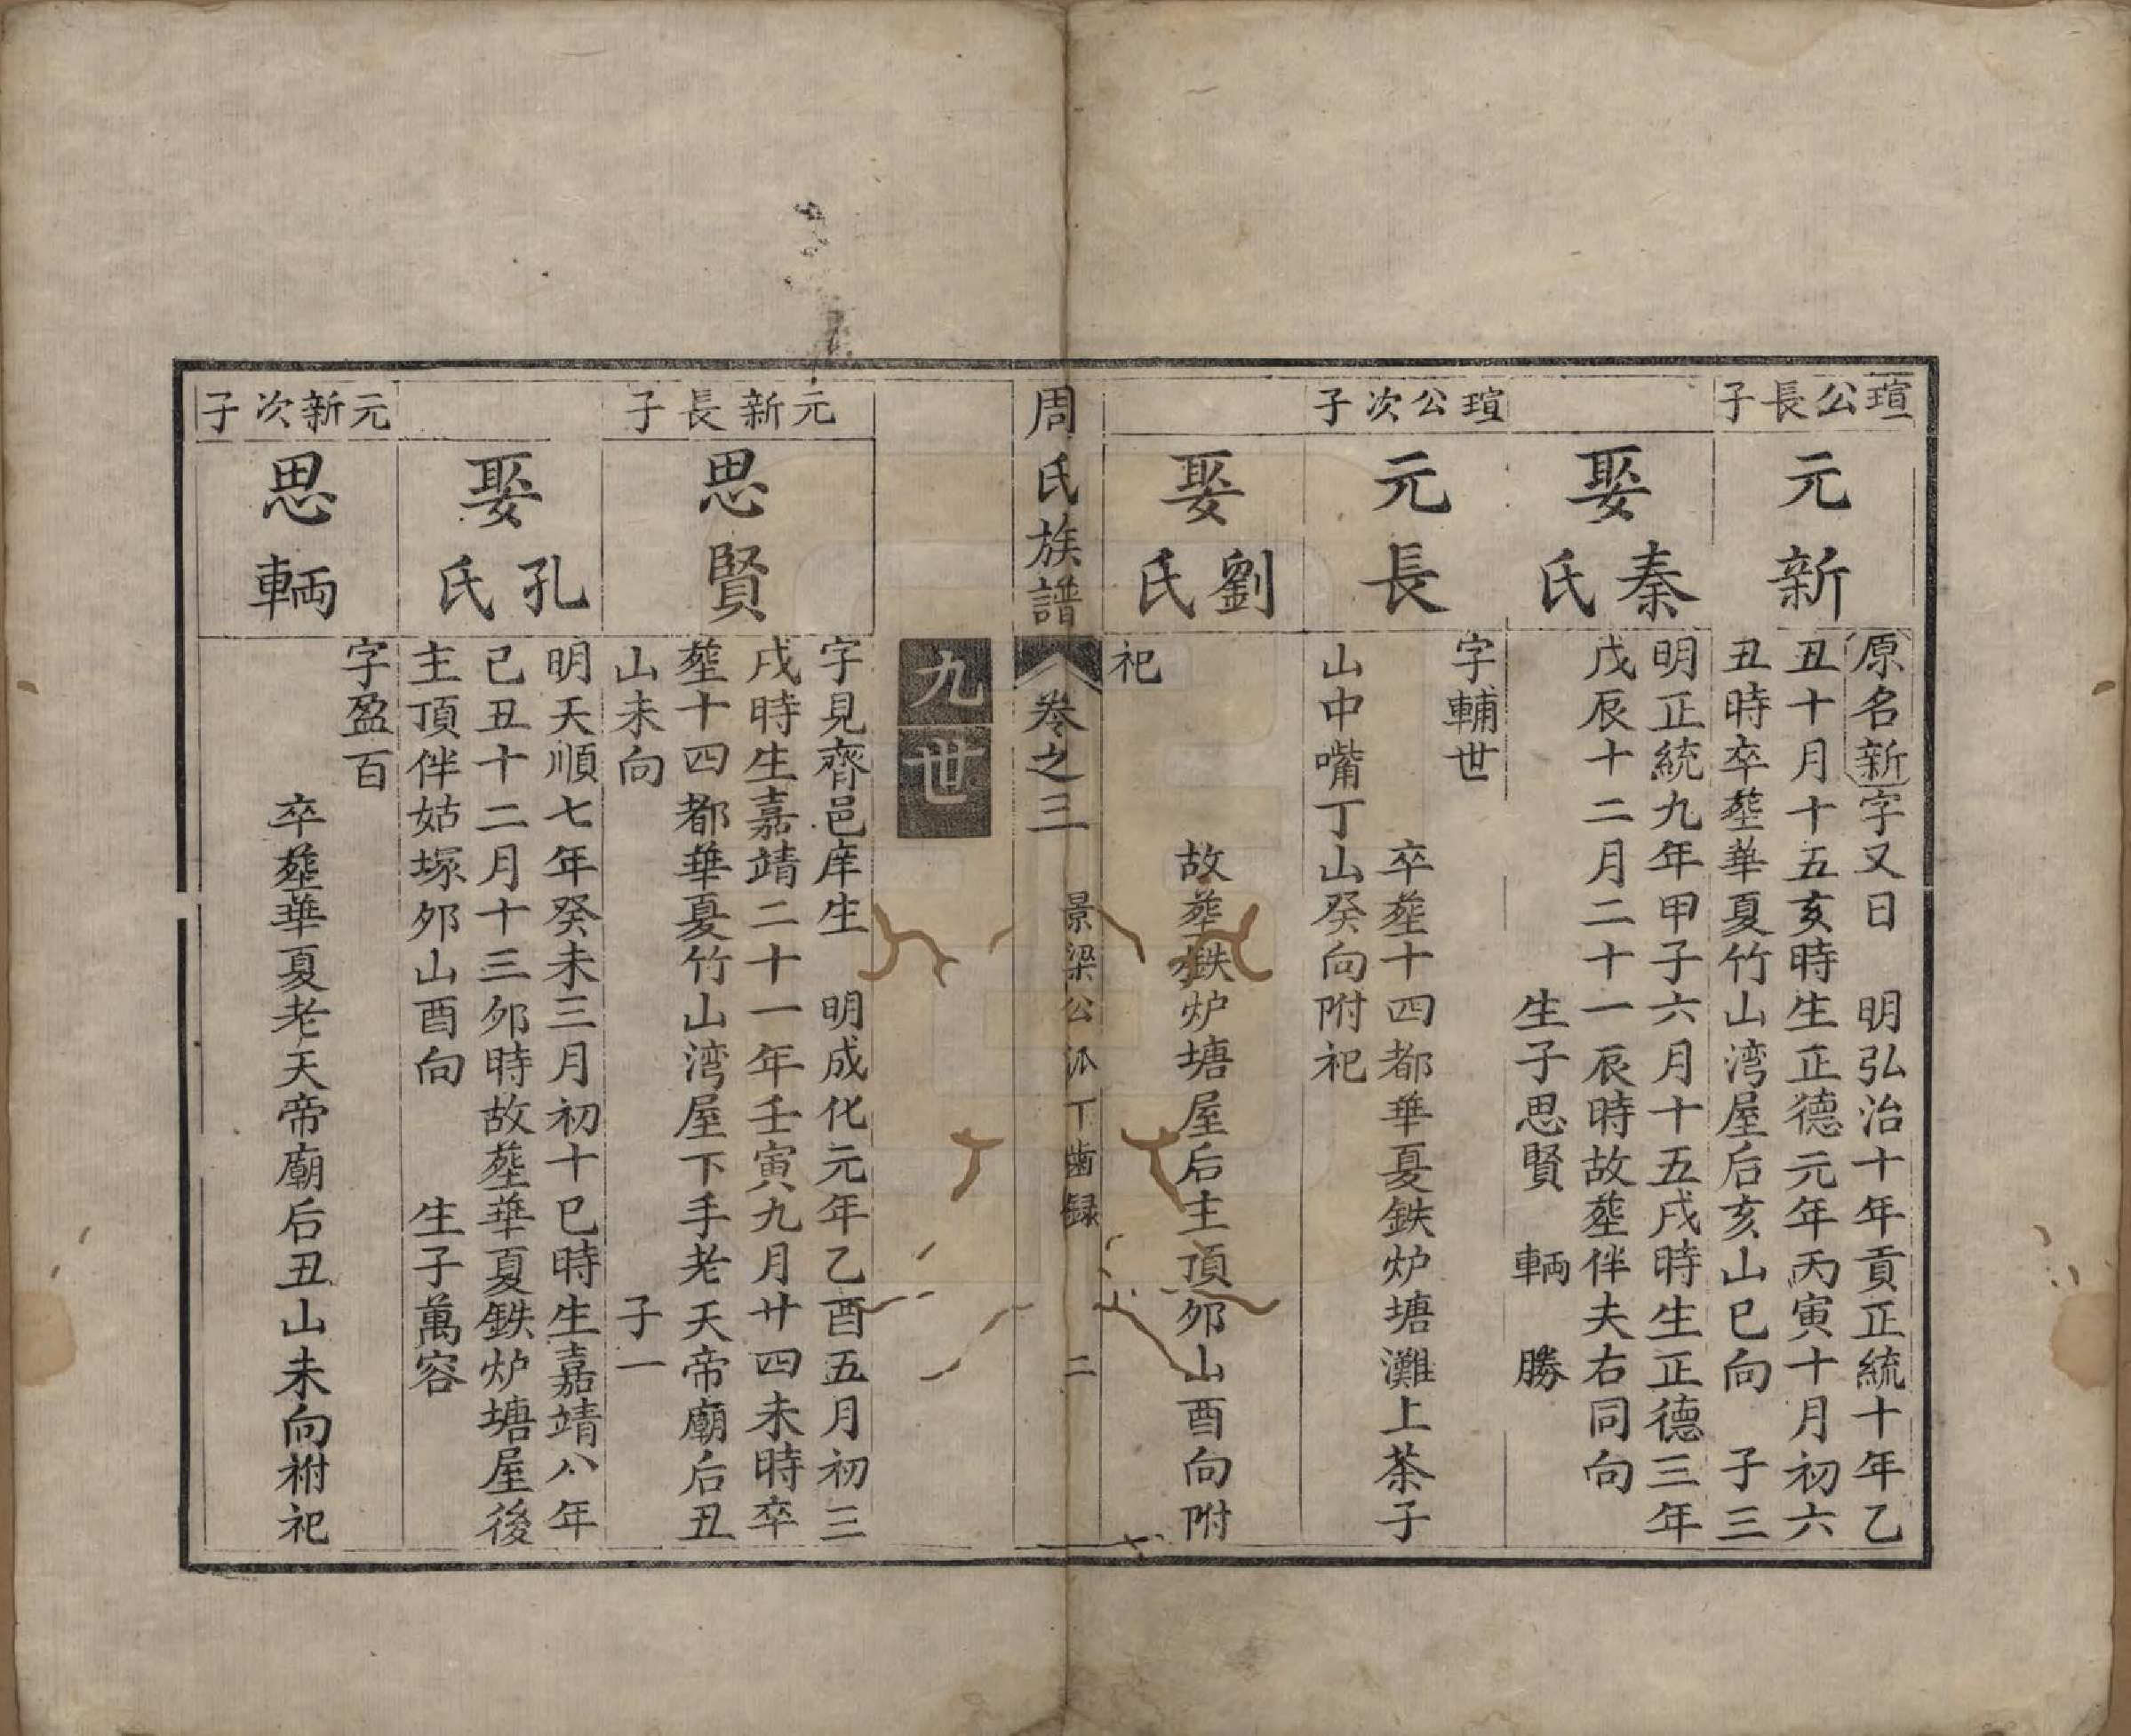 瑄公長子
元新
原名新字又日　明弘治十年貢正統十年乙
丑十月十五亥時生正德元年丙寅十月初六
丑時卒塟華夏竹山湾屋后亥山巳向　子三
娶秦氏
明正統九年甲子六月十五戌時生正德三年
戊辰十二月二十一辰時故塟伴夫右同向
生子思賢　輌　勝
瑄公次子
元長
字輔世
卒塟十四都華夏鉄炉塘灘上茶子
山中嘴丁山癸向附祀
娶劉氏
故塟鉄炉塘屋后主頂夘山酉向附
祀
周氏族譜
卷之三
景梁公派丁齒録
二
九世
元新長子
思賢
字見齊邑庠生　明成化元年乙酉五月初三
戌時生嘉靖二十一年壬寅九月廿四未時卒
塟十四都華夏竹山湾屋下手老天帝廟后丑
山未向　子一
娶孔氏
明天順七年癸未三月初十巳時生嘉靖八年
己丑十二月十三夘時故塟華夏鉄炉塘屋後
主頂伴姑塚夘山酉向　生子萬容
元新次子
思輌
字盈百
卒塟華夏老天帝廟后丑山未向祔祀